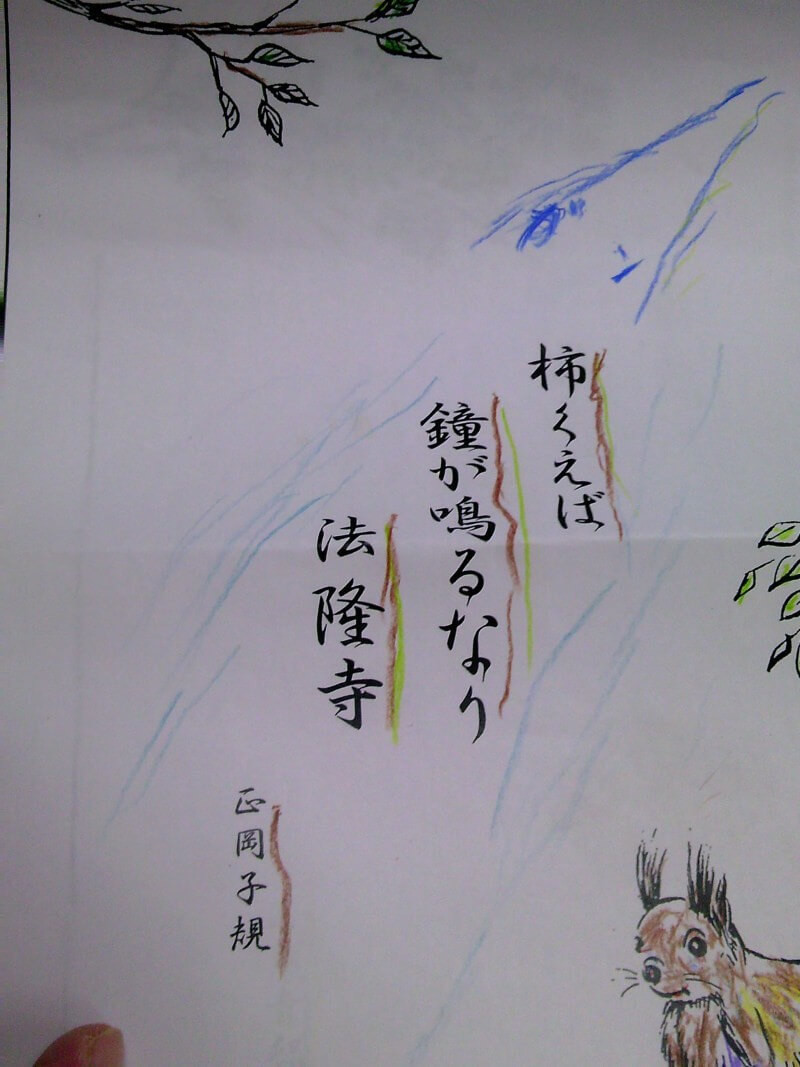 ガン
柿くえば
鐘が鳴るなり
法隆寺
正岡子規